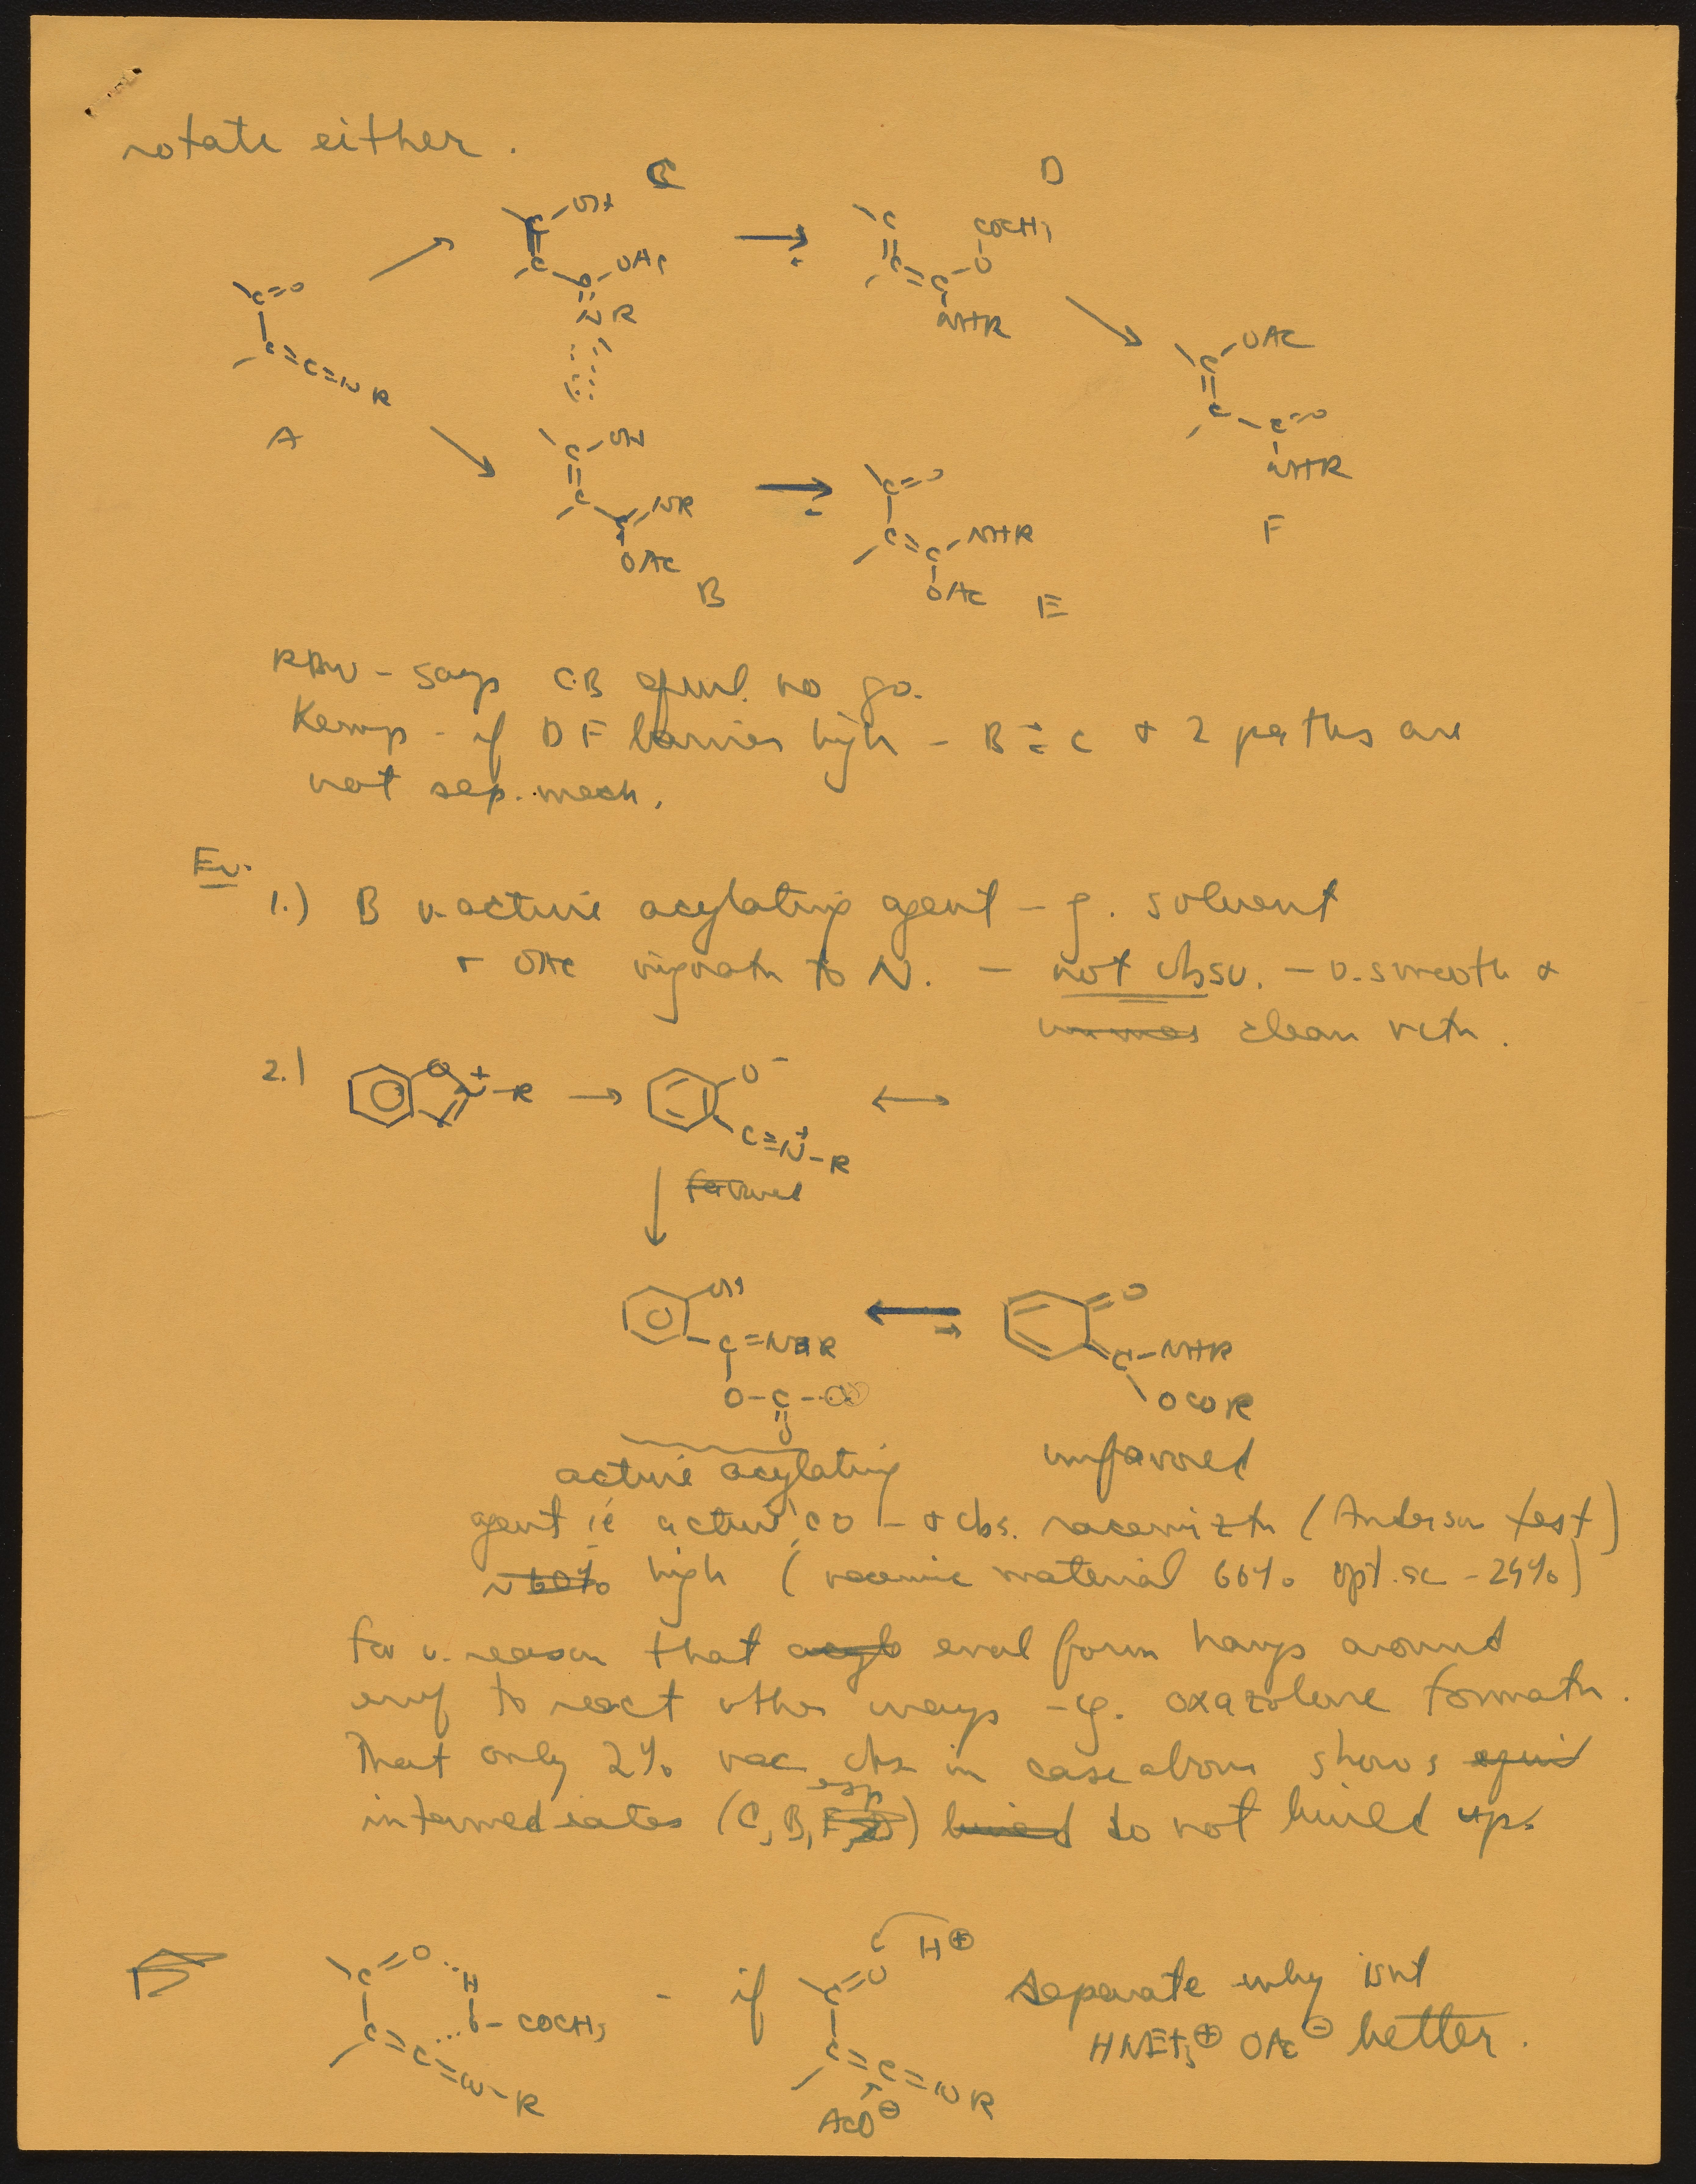 rotate either.
C D
OH
OAc
NR
COCH3
O
NHR
C=O
C=C=NR
A
OH
NR
OAc
B
C=O
NHR
OAc
E
OAc
C=O
NHR
F
RBW - says C.B equil. no go.
Kemp - if DF barrier high - B ⇄ C + 2 paths are
not sep. mech.
Ev.
1.) B v. active acylating agent - g. solvent
+ OAc migratn to N. - not obsv. - v. smooth +
clean rctn.
2.) O + N-R → O⁻ ↔
C≡N⁺-R
favored
OH
C=N R
O-C-
O
O
C-NHR
OCOR
active acylating unfavored
agent ie active CO - + obs. racemiztn (Anderson test)
~60% high (racemic material 66% opt. ac - 24%)
for v. reason that enol form hangs around
enuf to react other ways - eg. oxazolone formatn.
That only 2% rac obs in case above shows equil
esp
intermediates (C, B, ) do not build up.
C=O H
O-COCH3
C=C=N-R
- if
C=O H⊕
C=C=NR
AcO⊖
separate why isnt
HNEt3⊕ OAc⊖ better.